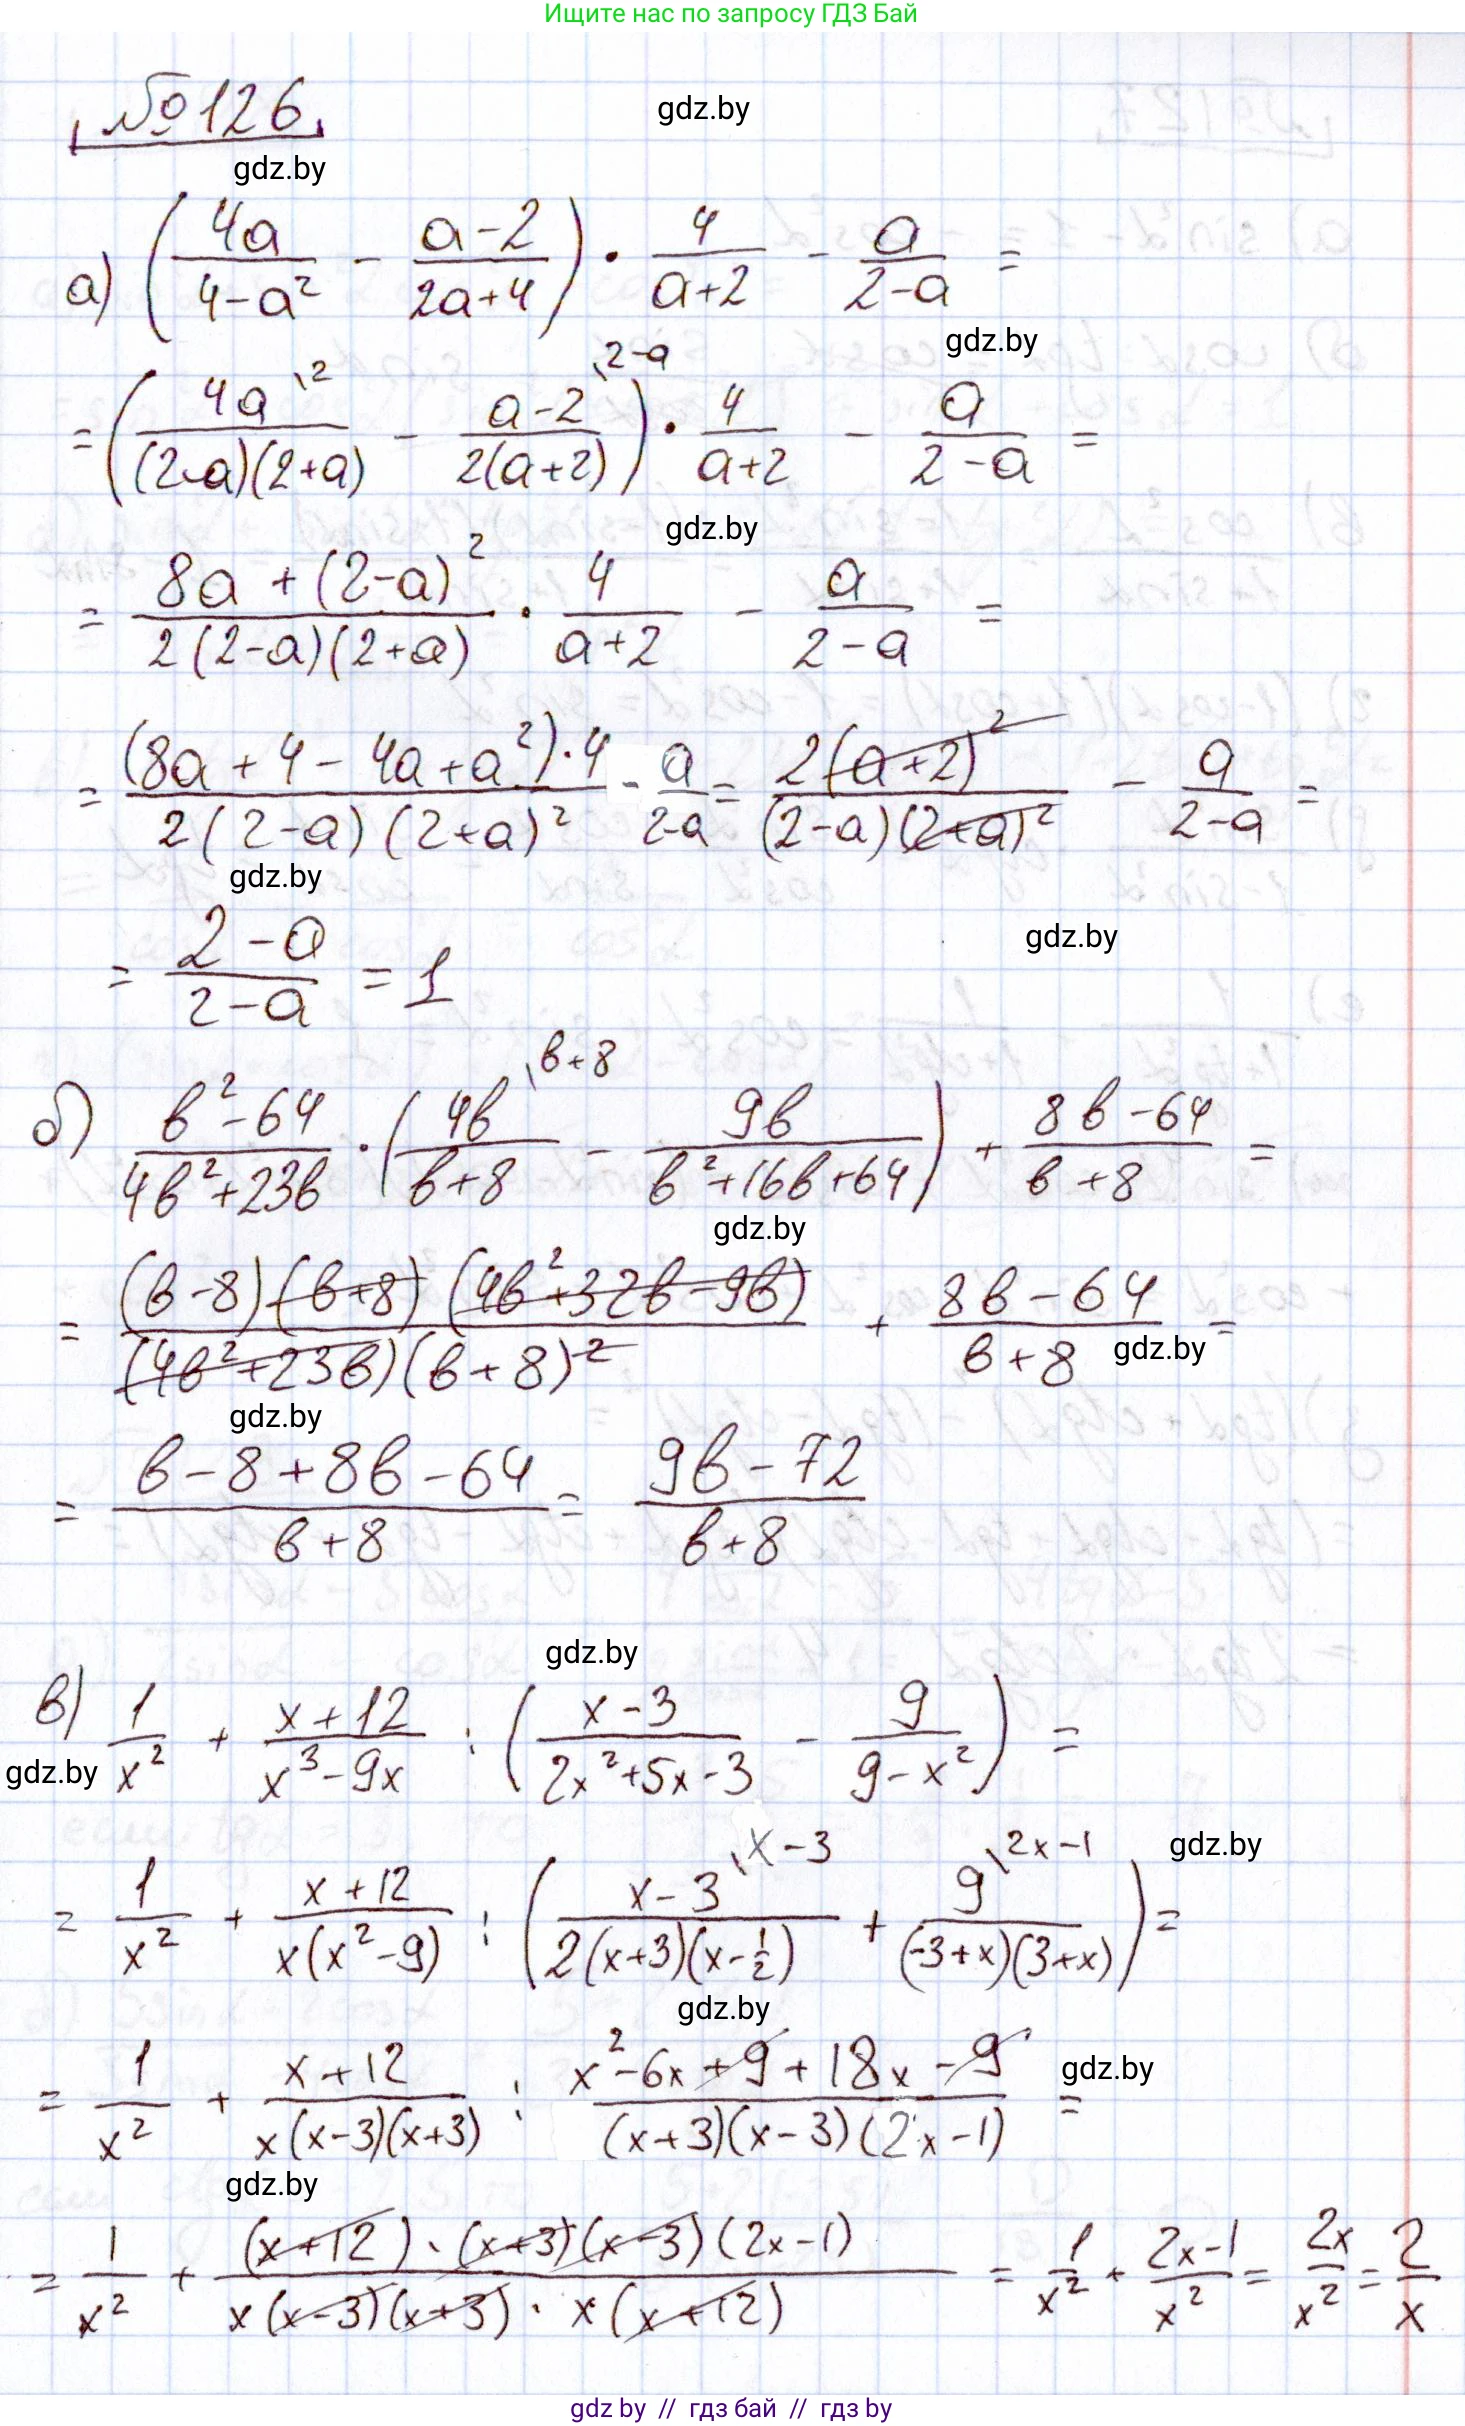 Ищите нас по запросу ГДЗ Бай
№126
gdz.by
gdz.by
а) (4a/(4-a²) - (a-2)/(2a+4)) · 4/(a+2) - a/(2-a) =
gdz.by
= (4a\2/((2-a)(2+a)) - (a-2)\2-a/(2(a+2))) · 4/(a+2) - a/(2-a) =
gdz.by
= (8a+(2-a)²)/(2(2-a)(2+a)) · 4/(a+2) - a/(2-a) =
= ((8a+4-4a+a²)·4)/(2(2-a)(2+a)²) - a/(2-a) = 2(a+2)²/((2-a)(2+a)²) - a/(2-a) =
gdz.by
gdz.by
= (2-a)/(2-a) = 1
б) (b²-64)/(4b²+23b) · (4b\b+8/(b+8) - 9b/(b²+16b+64)) + (8b-64)/(b+8) =
gdz.by
= ((b-8)(b+8)(4b²+32b-9b))/((4b²+23b)(b+8)²) + (8b-64)/(b+8) =
gdz.by
gdz.by
= (b-8+8b-64)/(b+8) = (9b-72)/(b+8)
gdz.by
в) 1/x² + (x+12)/(x³-9x) : ((x-3)/(2x²+5x-3) - 9/(9-x²)) =
gdz.by
= 1/x² + (x+12)/(x(x²-9)) : ((x-3)\x-3/(2(x+3)(x-1/2)) + 9\2x-1/((-3+x)(3+x))) =
gdz.by
gdz.by
= 1/x² + (x+12)/(x(x-3)(x+3)) : (x²-6x+9+18x-9)/((x+3)(x-3)(2x-1)) =
gdz.by
gdz.by
= 1/x² + ((x+12)·(x+3)(x-3)(2x-1))/(x(x-3)(x+3)·x(x+12)) = 1/x² + (2x-1)/x² = 2x/x² = 2/x
gdz by // гдз бай // гдз by